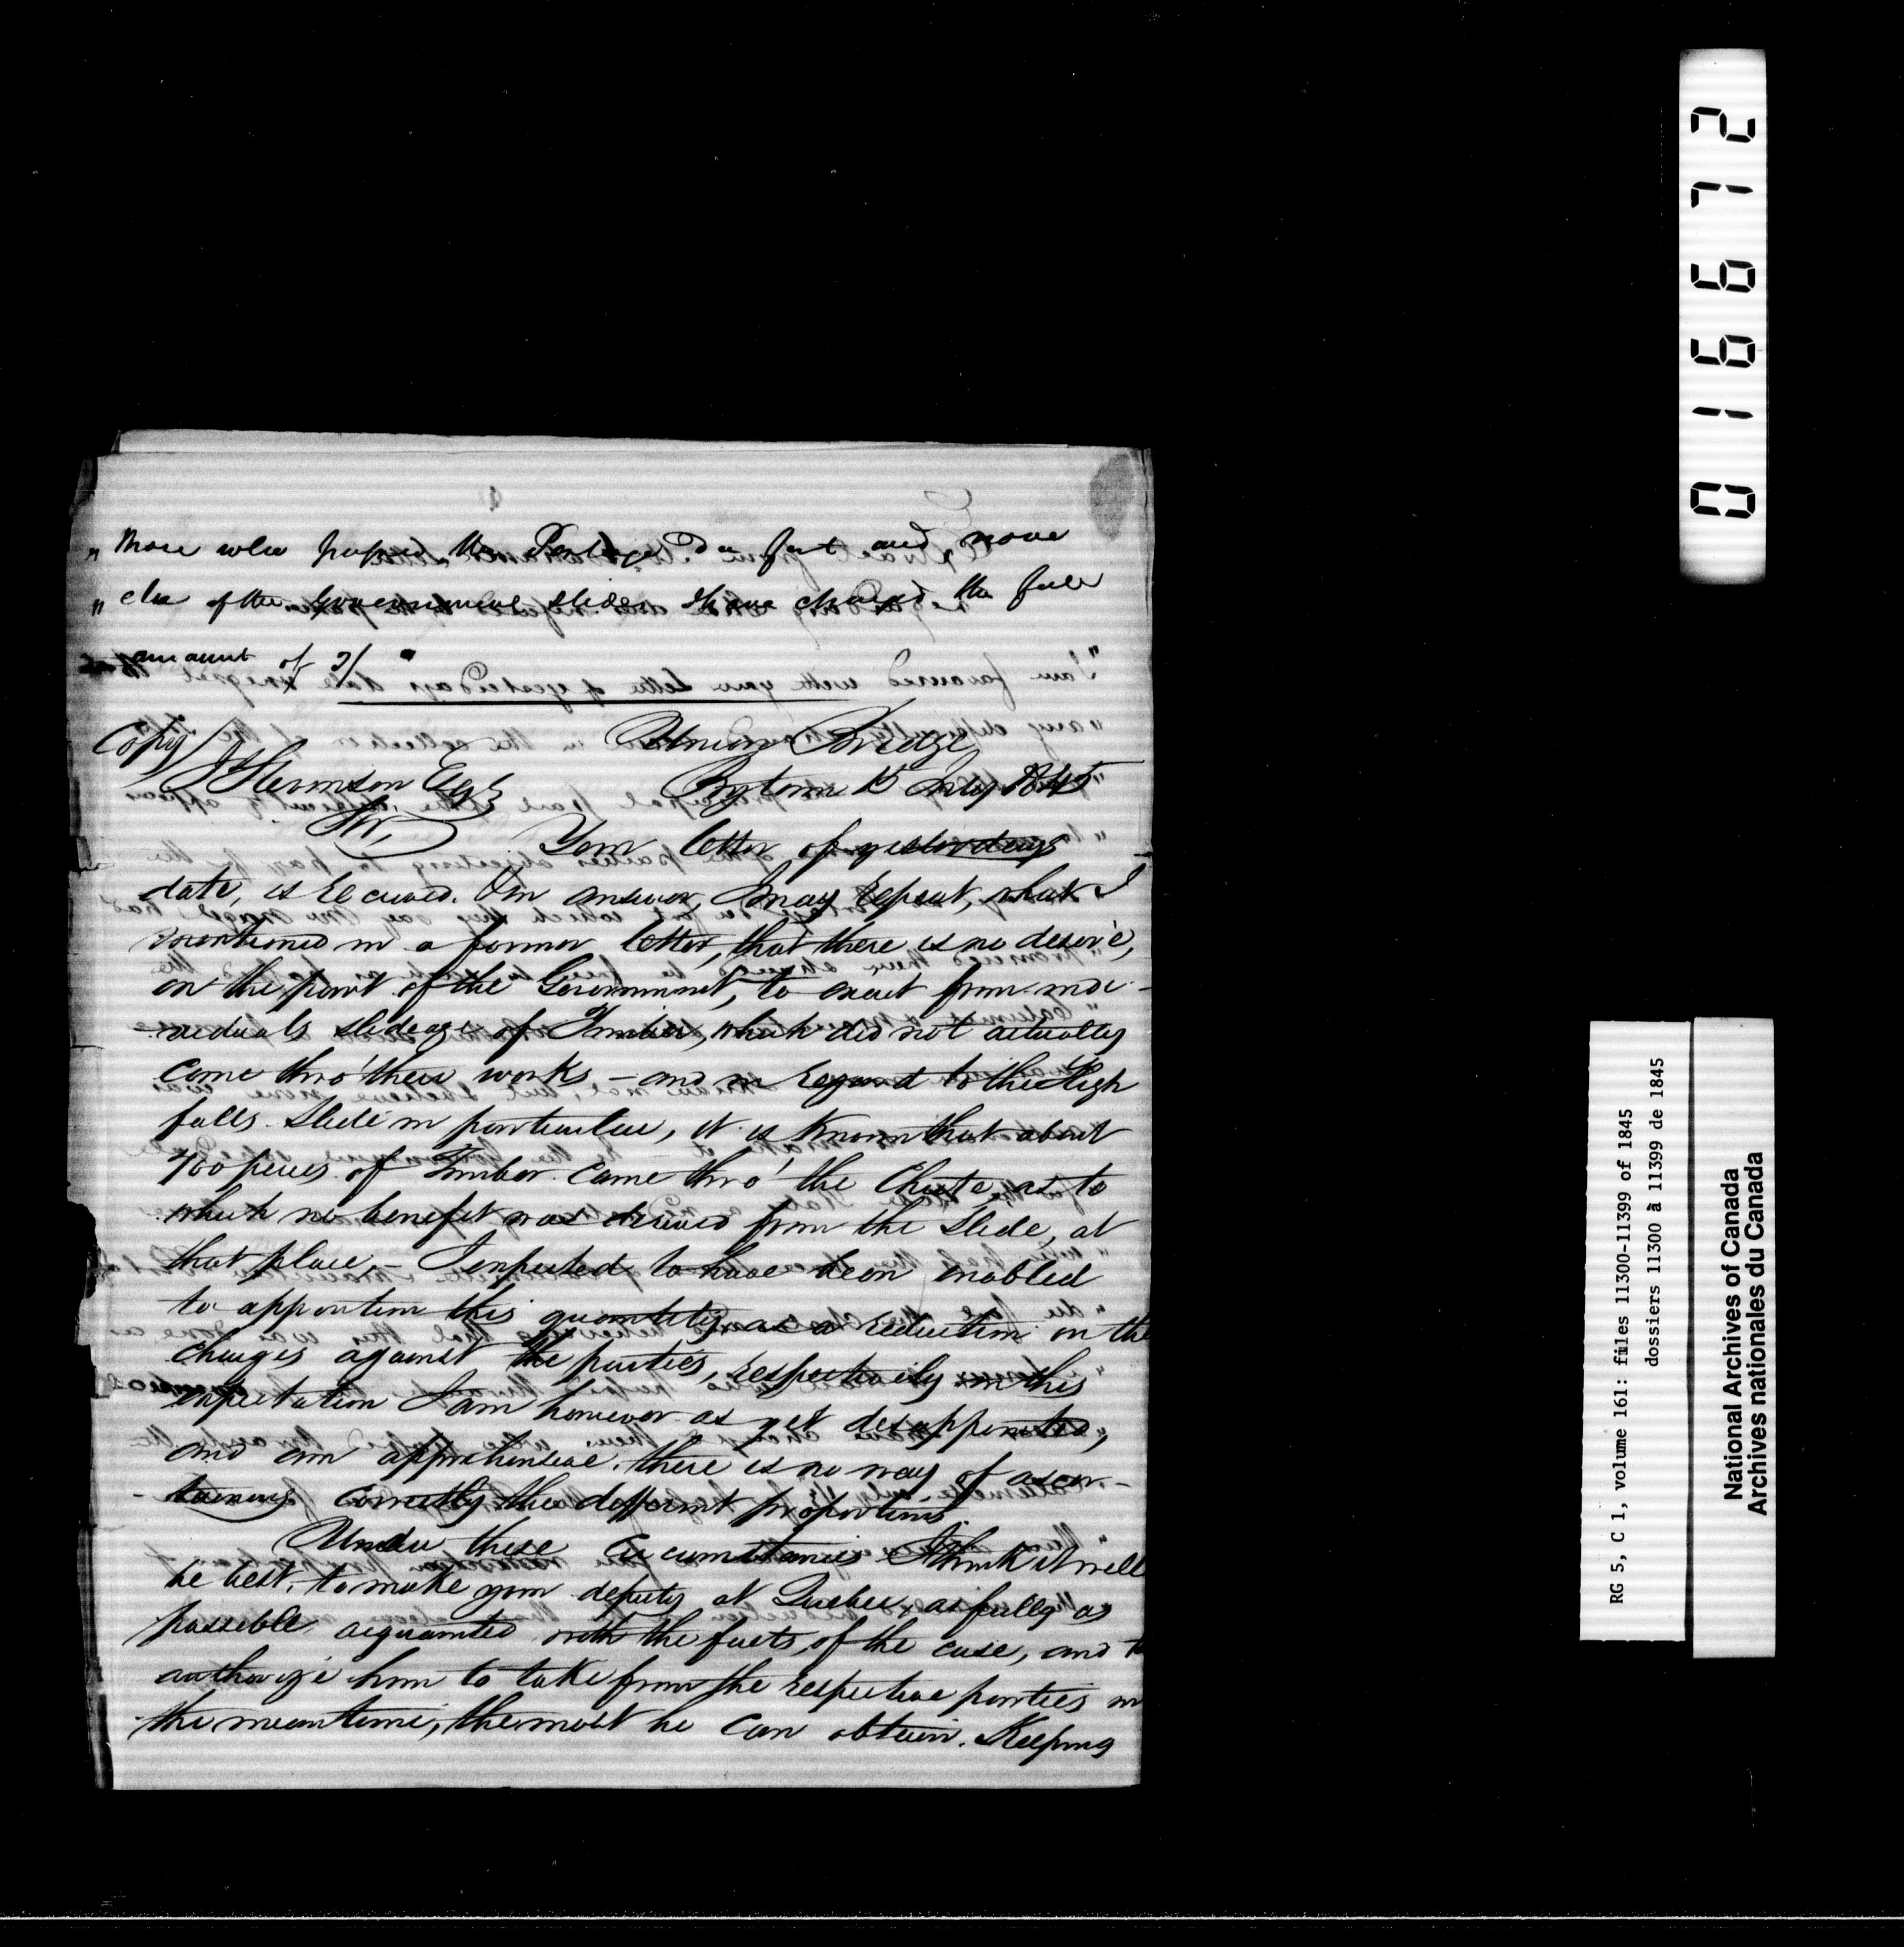 " those who passed the Portage du fort and none
" else of the Government slides I have charged the full
amount of 2/ "
Copy / Union Bridge
J Stevenson Esqr Bytown 15 July 1845
Sir,
Your letter of yesterdays
date, is received. In answer, I may repeat, what I
mentioned in a former letter, that there is no desire,
on the part of the Government, to exact from indi-
-viduals slideage of Timber, which did not actually
come thro' their works – and in regard to the High
falls Slide in particular, it is known that about
700 pieces of Timber came thro' the Chute, as to
which no benefit was derived from the Slide, at
that place, – I expected to have been enabled
to apportion this quantity, as a reduction on the
charges against the parties, respectively in this
expectation I am however as yet disappointed,
and am apprehensive, there is no way of ascer-
-taining correctly the different proportions.
Under these circumstances I think it will
be best, to make your deputy at Quebec, as fully as
possible acquainted with the facts of the case, and to
authorize him to take from the respective parties in
the meantime, the most he can obtain. Keeping
016672
RG 5, C 1, volume 161: files 11300-11399 of 1845
dossiers 11300 à 11399 de 1845
National Archives of Canada
Archives nationales du Canada